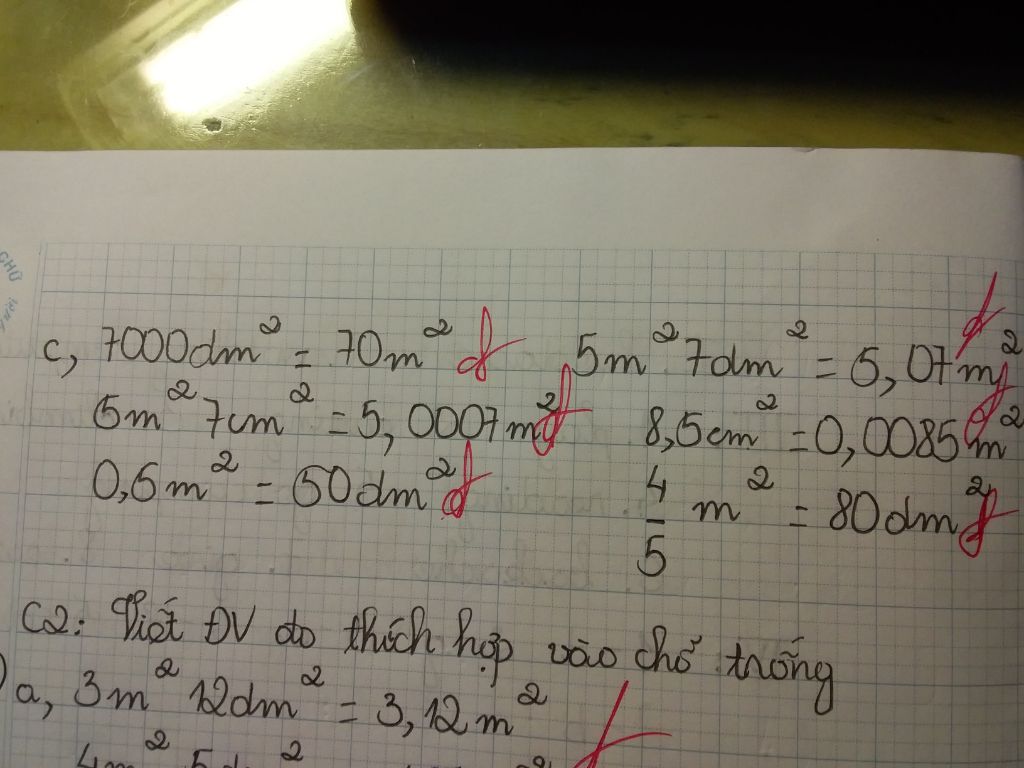 c, 7000dm² = 70m² đ 5m² 7dm² = 5,07m² đ
5m² 7cm² = 5,0007m² đ 8,5cm² = 0,0085m² đ
0,5m² = 50dm² đ 4/5 m² = 80dm² đ
C2: Viết ĐV đo thích hợp vào chỗ trống
a, 3m² 12dm² = 3,12m²